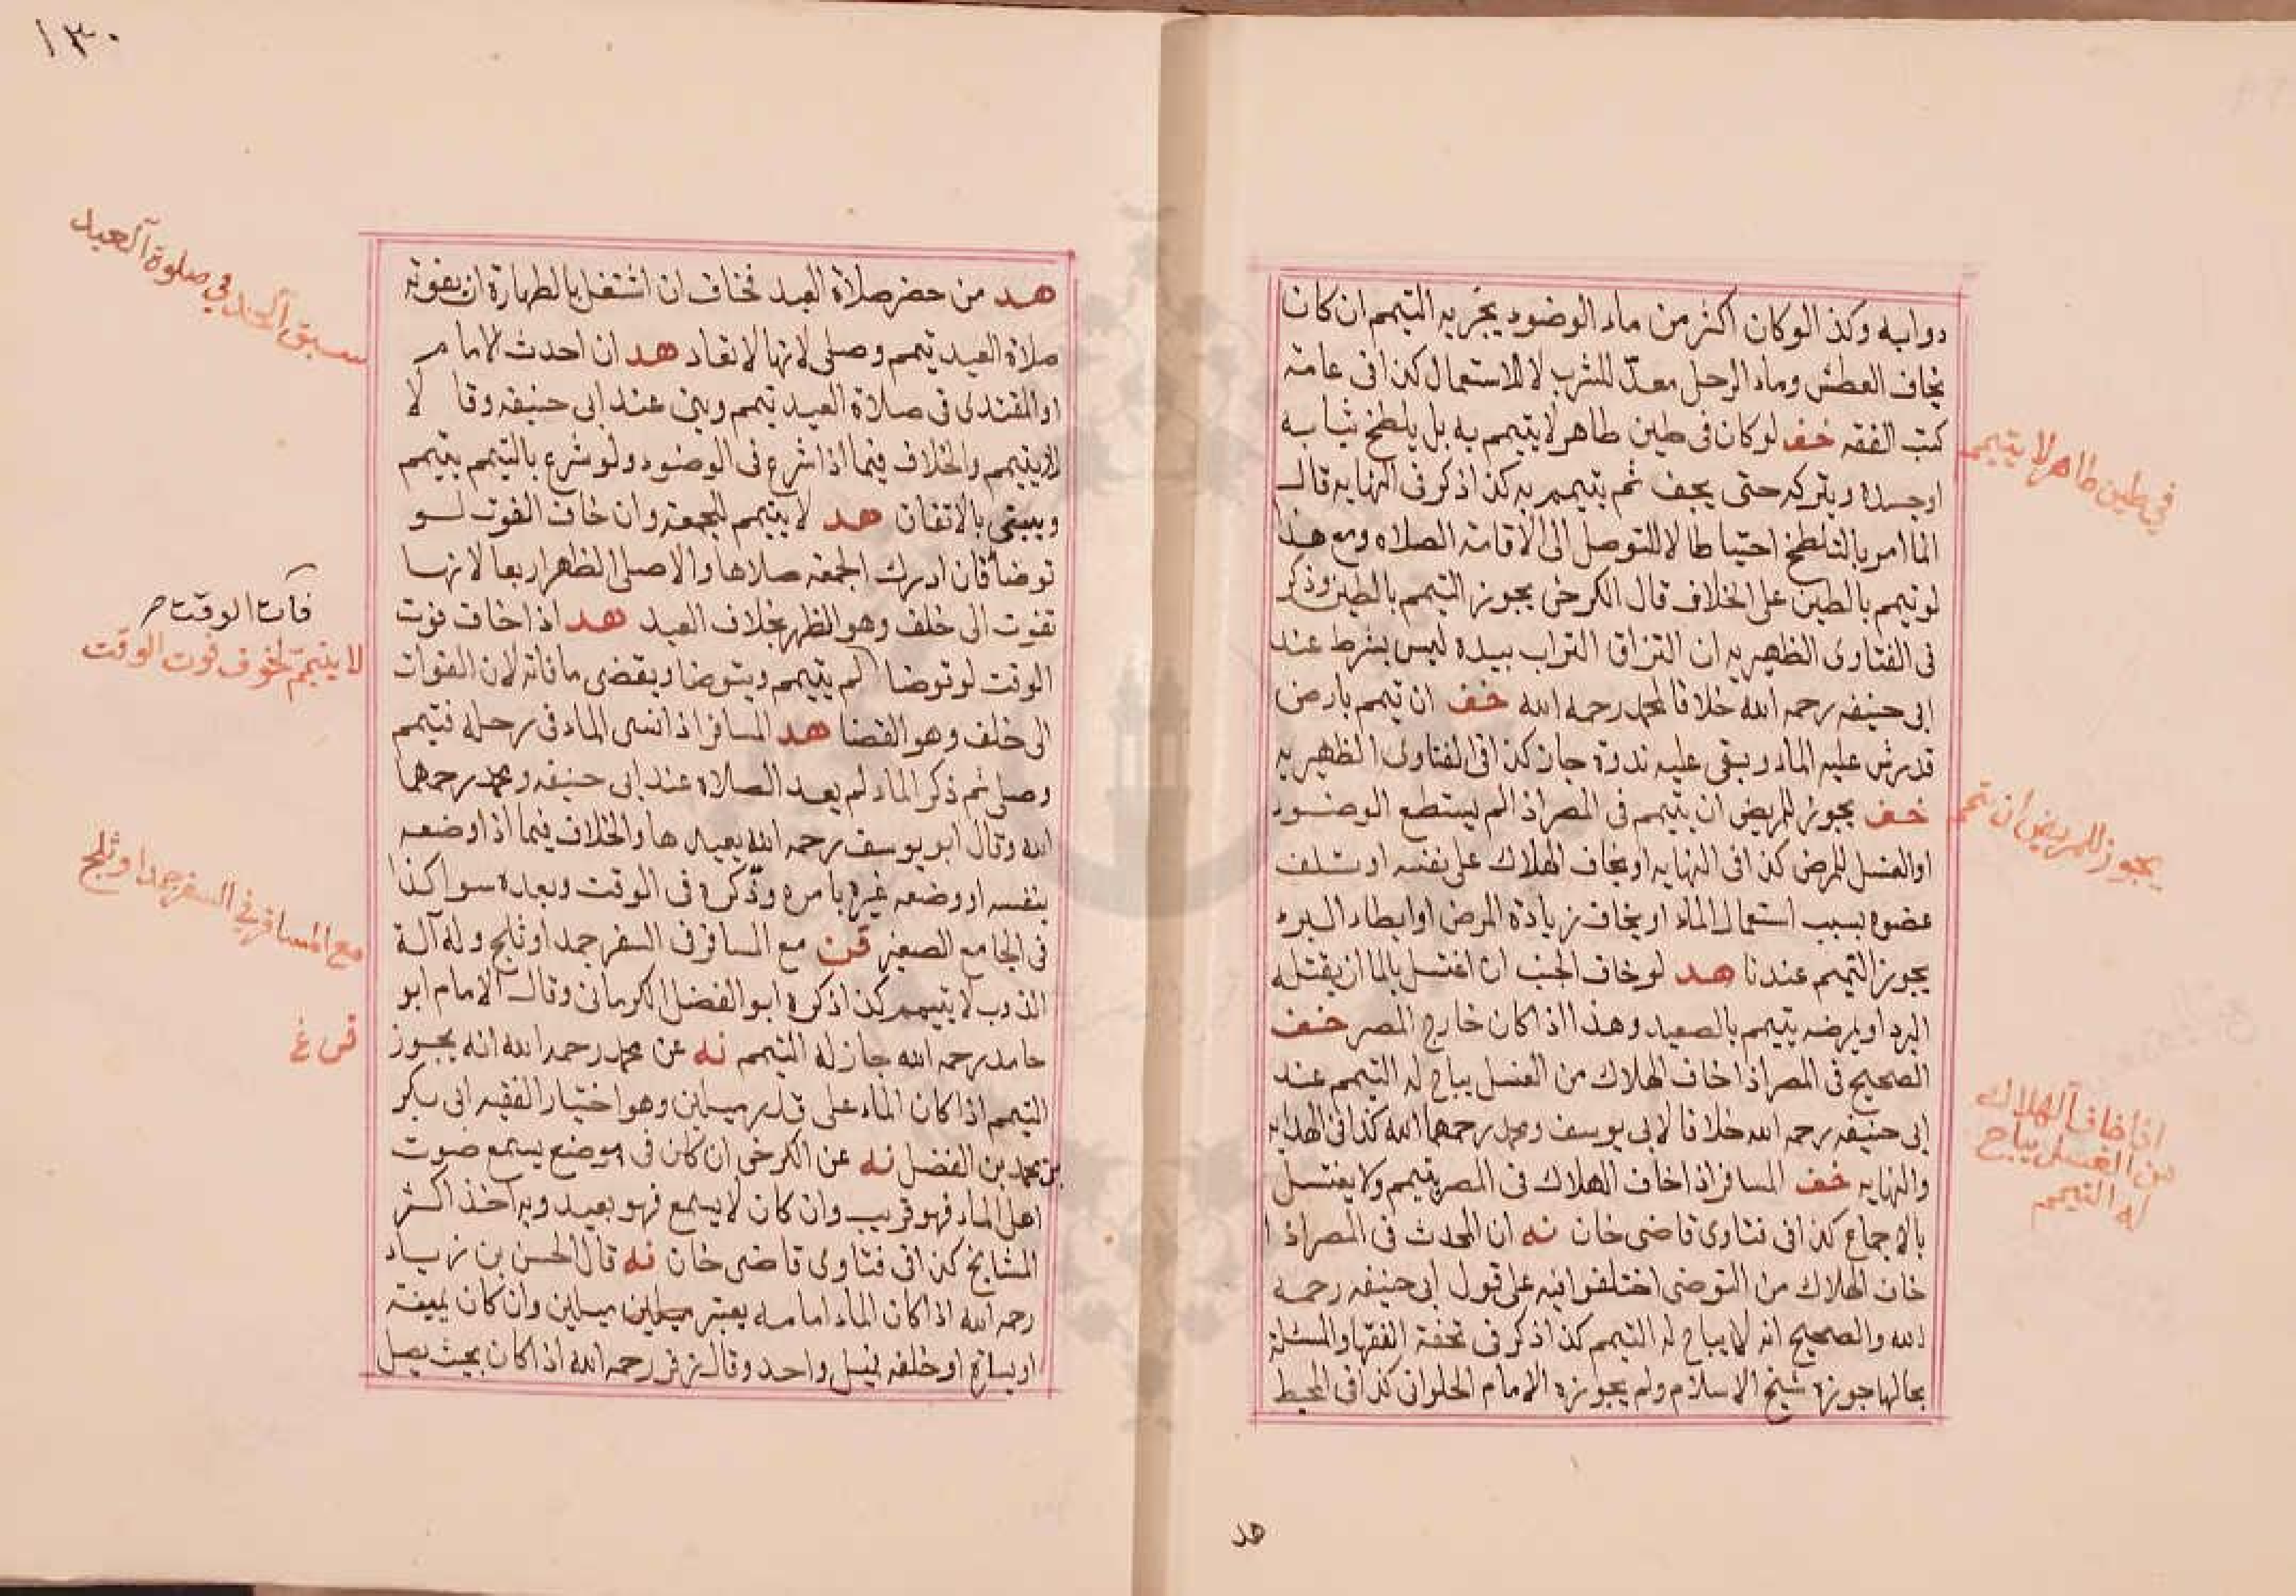 دوابه وكذا لوكان اكثر من ماء الوضوء يجزيه التيمم ان كان
يخاف العطش وماء الرحل معدّ للشرب لا للاستعمال كذا فى عامة
كتب الفقه خف لوكان فى طين طاهر لا يتيمم به بل يلطخ ثيابه
اوجسده ويتركه حتى يجف ثم يتيمم به كذا ذكر فى النهايه قال
انما امر بالتلطخ احتياطا لا للتوصل الى الاقامة الصلاه ومع هذا
لوتيمم بالطين على الخلاف قال الكرخى يجوز التيمم بالطين وذكر
فى الفتاوى الظهيريه ان التزاق التراب بيده ليس بشرط عند
ابى حنيفه رحمه الله خلافا لمحمد رحمه الله خف ان تيمم بارض
قد رش عليه الماء وبقى عليه ندوة جاز كذا فى الفتاوى الظهيريه
خف يجوز للمريض ان يتيمم فى المصر اذا لم يستطع الوضوء
او الغسل للمرض كذا فى النهايه او يخاف الهلاك على نفسه او تلف
عضوه بسبب استعمال الماء او يخاف زيادة المرض او ابطاء البرء
يجوز التيمم عندنا هد لو خاف الجنب ان اغتسل بالما ان يقتله
البرد او يمرضه يتيمم بالصعيد وهذا اذا كان خارج المصر خف
الصحيح فى المصر اذا خاف الهلاك من الغسل يباح له التيمم عند
ابى حنيفه رحمه الله خلافا لابى يوسف ومحمد رحمهما الله كذا فى الهدايه
والنهايه خف المسافر اذا خاف الهلاك فى المصر يتيمم ولا يغتسل
بالاجماع كذا فى فتاوى قاضى خان نه ان المحدث فى المصر اذا
خاف الهلاك من التوضى اختلفوا فيه على قول ابى حنيفه رحمه
الله والصحيح انه لا يباح له التيمم كذا ذكر فى تحفة الفقها والمسئلة
بحالها جوزه شيخ الاسلام ولم يجوزه الامام الحلوانى كذا فى المحيط
هد
فى طين طاهر لا يتيمم
يجوز للمريض ان تيمم
اذا خاف الهلاك
من الغسل يباح
له التيمم
١٣٠
هد من حضر صلاة العيد فخاف ان اشتغل بالطهارة ان يفوته
صلاة العيد تيمم وصلى لانها لا تعاد هد ان احدث الامام
او المقتدى فى صلاة العيد تيمم وبنى عند ابى حنيفه وقا لا
لا يتيمم والخلاف فيما اذا شرع فى الوضوء ولو شرع بالتيمم يتيمم
ويبنى بالاتفاق هد لا يتيمم للجمعة وان خاف الفوت لو
توضأ فان ادرك الجمعه صلاها والا صلى الظهر اربعا لانها
تفوت الى خلف وهو الظهر بخلاف العيد هد اذا خاف فوت
الوقت لو توضا لم يتيمم ويتوضا ويقضى ما فاته لان الفوات
الى خلف وهو القضا هد المسافر اذا نسى الماء فى رحله فتيمم
وصلى ثم ذكر الماء لم يعد الصلاه عند ابى حنيفه ومحمد رحمهما
الله وقال ابو يوسف رحمه الله يعيدها والخلاف فيما اذا وضعه
بنفسه او وضعه غيره بامره وذكره فى الوقت وبعده سوا كذا
فى الجامع الصغير قن مع المسافر فى السفر جمد او ثلج وله آلة
الذوب لا يتيمم كذا ذكره ابو الفضل الكرمانى وقال الامام ابو
حامد رحمه الله جاز له التيمم نه عن محمد رحمه الله انه يجوز
التيمم اذا كان الماء على قدر ميلين وهو اختيار الفقيه ابى بكر
بن محمد بن الفضل نه عن الكرخى ان كان فى موضع يسمع صوت
اهل الماء فهو قريب وان كان لا يسمع فهو بعيد وبه اخذ اكثر
المشايخ كذا فى فتاوى قاضى خان نه قال الحسن بن زياد
رحمه الله اذا كان الماء امامه يعتبر ميلين وان كان يمينه
او يساره او خلفه فميل واحد وقال زفر رحمه الله اذا كان بحيث يصل
سبق الحدث فى صلوة العيد
فات الوقت
لا يتيمم لخوف فوت الوقت
مع المسافر فى السفر جمد او ثلج